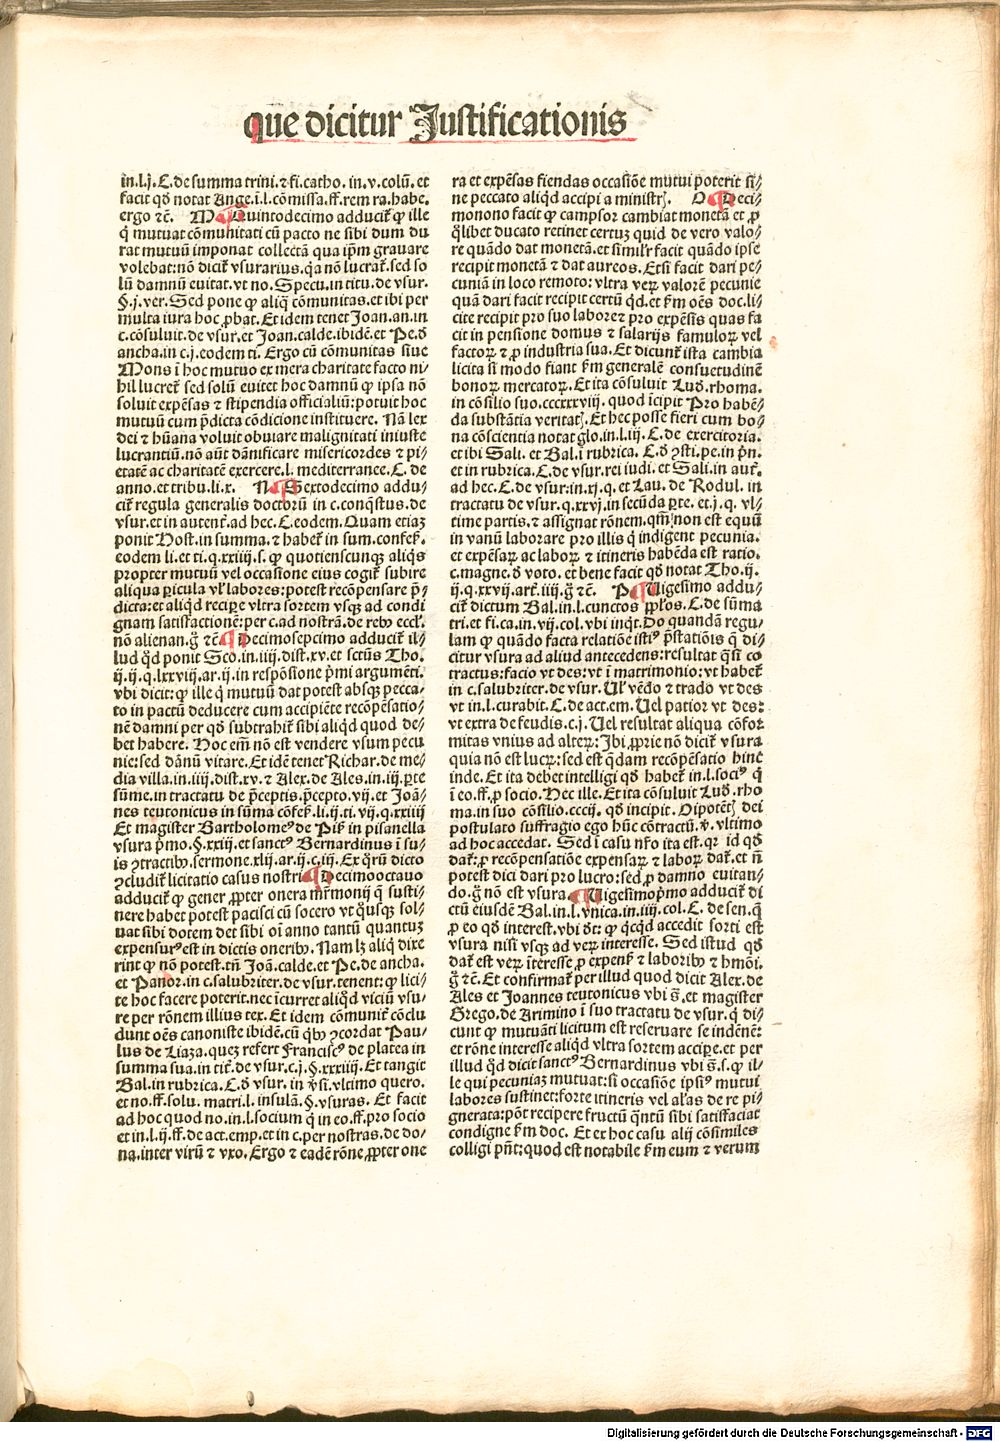 que dicitur Justificationis
in.l.j.C.de summa trini.⁊ fi.catho.in.v.colū.et
facit qḋ notat Ange.ī.l.cōmissa.ff.rem ra.habe.
ergo ⁊c̄. M Quintodecimo adducit͛ ꝙ ille
q̇ mutuat cōmunitati cū pacto ne sibi dum du
rat mutuū imponat collectā qua ip̄m grauare
volebat:nō dicit͛ vsurarius.q̇a nō lucrat͛.sed so
lū damnū euitat.vt no.Specu.in titu.de vsur.
§.j.ver.Sed pone ꝙ aliq̇ cōmunitas.et ibi per
multa iura hoc ꝓbat.Et idem tenet Joan.an.in
c.cōsuluit.de vsur.et Joan.calde.ibidē.et Pe.ḋ
ancha.in c.j.eodem ti. Ergo cū cōmunitas siue
Mons ī hoc mutuo ex mera charitate facto ni/
hil lucret͛ sed solū euitet hoc damnū ꝙ ipsa nō
soluit expēsas ⁊ stipendia officialiū:potuit hoc
mutuū cum p̄dicta cōdicione instituere. Nā lex
dei ⁊ hūana voluit obuiare malignitati iniuste
lucrantiū.nō aūt dānificare misericordes ⁊ pi/
etatē ac charitatē exercere.l. mediterranee.C. de
anno.et tribu.li.x. N Sextodecimo addu/
cit͛ regula generalis doctorū in c.conq̄stus.de
vsur.et in autent͛.ad hec.C.eodem.Quam etiaꝫ
ponit Host.in summa.⁊ habet͛ in sum.confes͛.
eodem li.et ti.q.xxiiij.s.ꝙ quotienscunqꝫ aliq̇s
propter mutuū vel occasione eius cogit͛ subire
aliqua ꝑicula vl' labores:potest recōpensare p̄/
dicta:et aliqḋ recipe vltra sortem vsqꝫ ad condi
gnam satisfactionē:per c.ad nostrā.de rebꝰ eccl'.
nō alienan.g̊ ⁊c̄ Decimosepcimo adducit͛ il/
lud qḋ ponit Sco.in.iiij.dist.xv.et sctūs Tho.
ij.ij.q.lxxviij.ar.ij.in respōsione p̄mi argumēti.
vbi dicit:ꝙ ille q̇ mutuū dat potest absqꝫ pecca/
to in pactū deducere cum accipiēte recōpēsatio/
nē damni per qḋ subtrahit͛ sibi aliqḋ quod de/
bet habere. Hoc em̄ nō est vendere vsum pecu
nie:sed dānū vitare.Et idē tenet Richar.de me/
dia villa.in.iiij.dist.xv.⁊ Alex.de Ales.in.iij.ꝑte
sūme.in tractatu de p̄ceptis.p̄cepto.vij.et Joā/
nes teutonicus in sūma cōfes͛.li.ij.ti.vij.q.xxiiij
Et magister Bartholomeꝰ de Pis͛ in pisanella
vsura p̄mo.§.xxiij.et sanctꝰ Bernardinus ī su/
is ꝯtractibꝰ.sermone.xlij.ar.ij.c.iij.Ex q̇rū dicto
ꝯcludit͛ licitatio casus nostri Decimooctauo
adducit͛ ꝙ gener ꝓpter onera mr̄imonij q̄ susti/
nere habet potest pacisci cū socero vt q̇usqꝫ sol/
uat sibi dotem det sibi oī anno tantū quantuꝫ
expensurꝰ est in dictis oneribꝰ. Nam lꝫ aliq̇ dixe
rint ꝙ nō potest.tn̄ Joā.calde.et Pe.de ancha.
et Panor.in c.salubriter.de vsur.tenent:ꝙ lici/
te hoc facere poterit.nec īcurret aliqḋ viciū vsu/
re per rōnem illius tex.Et idem cōmunit͛ cōclu
dunt oēs canoniste ibidē.cū q̇bꝰ ꝯcordat Pau/
lus de Liaza.queꝫ refert Franciscꝰ de platea in
summa sua.in tit͛.de vsur.c.j.§.xxxiiij.Et tangit
Bal.in rubrica.C.ḋ vsur. in ꝟsi.vltimo quero.
et no.ff.solu. matri.l. insulā.§.vsuras. Et facit
ad hoc quod no.in l.socium q̇ in eo.ff.pro socio
et in.l.ij.ff.de act.emp.et in c.per nostras.de do/
na.inter virū ⁊ vxo.Ergo ⁊ eadē rōne.ꝓpter one
ra et expēsas fiendas occasiōe mutui poterit si/
ne peccato aliqḋ accipi a ministrꝭ. O Deci/
monono facit ꝙ campsor cambiat monetā et ꝓ
q̇libet ducato retinet certuꝫ quid de vero valo/
re quādo dat monetā.et simil'r facit quādo ipse
recipit monetā ⁊ dat aureos. Etsi facit dari pe/
cuniā in loco remoto: vltra veꝝ valorē pecunie
quā dari facit recipit certū qḋ.et ẜm oēs doc.li/
cite recipit pro suo labore ⁊ pro expēsis quas fa
cit in pensione domus ⁊ salarijs famuloꝝ vel
factoꝝ ⁊ ꝓ industria sua. Et dicunt͛ ista cambia
licita si modo fiant ẜm generalē consuetudinē
bonoꝝ mercatoꝝ. Et ita cōsuluit Luḋ.rhoma.
in cōsilio suo.cccxxxviij. quod īcipit Pro habē/
da substātia veritatꝭ. Et hec posse fieri cum bo/
na cōscientia notat glo.in.l.iij. C.de exercitoria.
et ibi Sali. et Bal.ī rubrica. C.ḋ ꝯsti.pe.in p̄n.
et in rubrica.C.de vsur.rei iudi.et Sali.in aut͛.
ad hec.C.de vsur.in.xj.q.et Lau. de Rodul. in
tractatu de vsur.q.xxvj.in secūda ꝑte. et.j.q. vl/
time partis.⁊ assignat rōnem.qm̄ non est equū
in vanū laborare pro illis q̇ indigent pecunia.
et expēsaꝝ ac laboꝝ ⁊ itineris habēda est ratio.
c.magne.ḋ voto.et bene facit qḋ notat Tho.ij.
ij.q.xxvij.art͛.iiij.g̊ ⁊c̄. P Uigesimo addu/
cit͛ dictum Bal.in.l.cunctos ꝓpl'os.C.de sūma
tri.et fi.ca.in.vij.col.vbi inq̇t.Do quandā regu/
lam ꝙ quādo facta relatiōe istiꝰ p̄stationis q̄ di/
citur vsura ad aliud antecedens:resultat q̄si cō
tractus:facio vt des:vt ī matrimonio:vt habet͛
in c.salubriter.de vsur. Ul' vēdo ⁊ trado vt des
vt in.l.curabit.C.de act.em. Uel patior vt des:
vt extra de feudis.c.j. Uel resultat aliqua cōfor
mitas vnius ad alteꝝ: Ibi ꝓprie nō dicit͛ vsura
quia nō est lucꝝ: sed est q̇dam recōpēsatio hinc̄
inde. Et ita debet intelligi qḋ habet͛ in.l.sociꝰ q̇
ī eo.ff.ꝓ socio. Hec ille.Et ita cōsuluit Luḋ.rho
ma.in suo cōsilio.cccij. qḋ incipit. Oīpotētꝭ dei
postulato suffragio ego hūc cōtractū.ꝟ.vltimo
ad hoc accedat. Sed ī casu nr̄o ita est.qꝛ id qḋ
dat͛:ꝓ recōpensatiōe expensaꝝ ⁊ laboꝝ dat͛.et n̄
potest dici dari pro lucro:sed ꝓ damno euitan/
do.g̊ nō est vsura Uigesimop̄mo adducit͛ di
ctū eiusdē Bal.in.l.vnica.in.iiij.col.C.de sen.q̄
ꝓ eo qḋ interest.vbi ḋt: ꝙ q̇cq̇d accedit sorti est
vsura nisi vsqꝫ ad veꝝ interesse. Sed istud qḋ
dat͛ est veꝝ īteresse ꝓ expens͛ ⁊ laboribꝰ ⁊ hm̄oi.
g̊ ⁊c̄. Et confirmat͛ per illud quod dicit Alex.de
Ales et Joannes teutonicus vbi s̄.et magister
Grego.de Arimino ī suo tractatu de vsur.q̇ di/
cunt ꝙ mutuāti licitum est reseruare se indēnē:
et rōne interesse aliqḋ vltra sortem accipe.et per
illud qḋ dicit sanctꝰ Bernardinus vbi s̄.s.ꝙ il/
le qui pecuniaꝫ mutuat:si occasiōe ipsiꝰ mutui
labores sustinet:forte itineris vel al'as de re pi/
gnerata:pōt recipere fructū q̄ntū sibi satisfaciat
condigne ẜm doc. Et ex hoc casu alij cōsimiles
colligi pn̄t:quod est notabile ẜm eum ⁊ verum
Digitalisierung gefördert durch die Deutsche Forschungsgemeinschaft - DFG